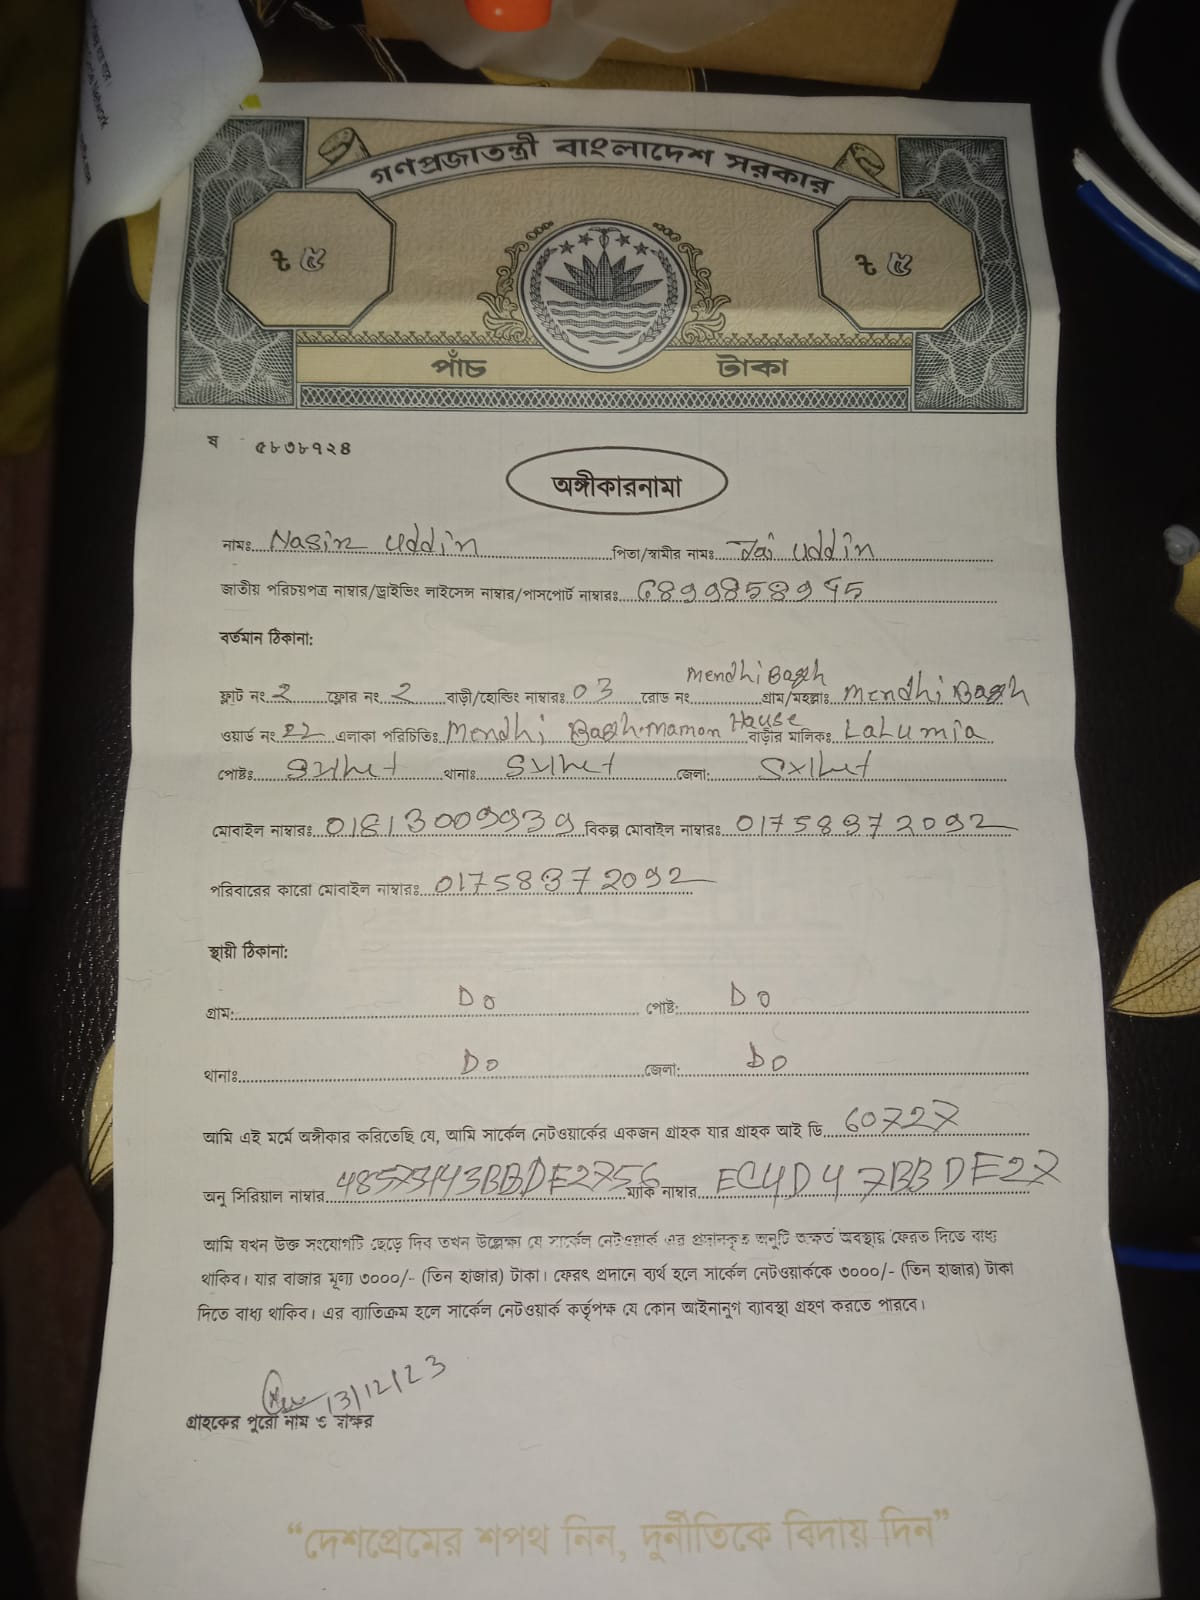 গণপ্রজাতন্ত্রী বাংলাদেশ সরকার
৳ ৫ ৳ ৫
পাঁচ টাকা
ষ ৫৮৩৮৭২৪
অঙ্গীকারনামা
নামঃ Nasir uddin পিতা/স্বামীর নামঃ uddin
জাতীয় পরিচয়পত্র নাম্বার/ড্রাইভিং লাইসেন্স নাম্বার/পাসপোর্ট নাম্বারঃ
বর্তমান ঠিকানা:
Mendhi Bagh
ফ্লাট নং 2 ফ্লোর নং 2 বাড়ী/হোল্ডিং নাম্বারঃ 03 রোড নং গ্রাম/মহল্লাঃ Mendhi Bagh
ওয়ার্ড নং 22 এলাকা পরিচিতিঃ Mendhi Bagh Mamon House বাড়ীর মালিকঃ Lalumia
পোষ্টঃ Sylhet থানাঃ Sylhet জেলা: Sylhet
মোবাইল নাম্বারঃ বিকল্প মোবাইল নাম্বারঃ
পরিবারের কারো মোবাইল নাম্বারঃ
স্থায়ী ঠিকানা:
গ্রাম: Do পোষ্ট: Do
থানাঃ Do জেলা: Do
আমি এই মর্মে অঙ্গীকার করিতেছি যে, আমি সার্কেল নেটওয়ার্কের একজন গ্রাহক যার গ্রাহক আই ডি 60727
অনু সিরিয়াল নাম্বার ম্যাক নাম্বার EC4D47BBDE27
আমি যখন উক্ত সংযোগটি ছেড়ে দিব তখন উল্লেক্ষ্য যে সার্কেল নেটওয়ার্ক এর প্রদানকৃত অনুটি অক্ষত অবস্থায় ফেরত দিতে বাধ্য
থাকিব। যার বাজার মূল্য ৩০০০/- (তিন হাজার) টাকা। ফেরৎ প্রদানে ব্যর্থ হলে সার্কেল নেটওয়ার্ককে ৩০০০/- (তিন হাজার) টাকা
দিতে বাধ্য থাকিব। এর ব্যাতিক্রম হলে সার্কেল নেটওয়ার্ক কর্তৃপক্ষ যে কোন আইনানুগ ব্যাবস্থা গ্রহণ করতে পারবে।
13/12/23
গ্রাহকের পুরো নাম ও স্বাক্ষর
“দেশপ্রেমের শপথ নিন, দুর্নীতিকে বিদায় দিন”